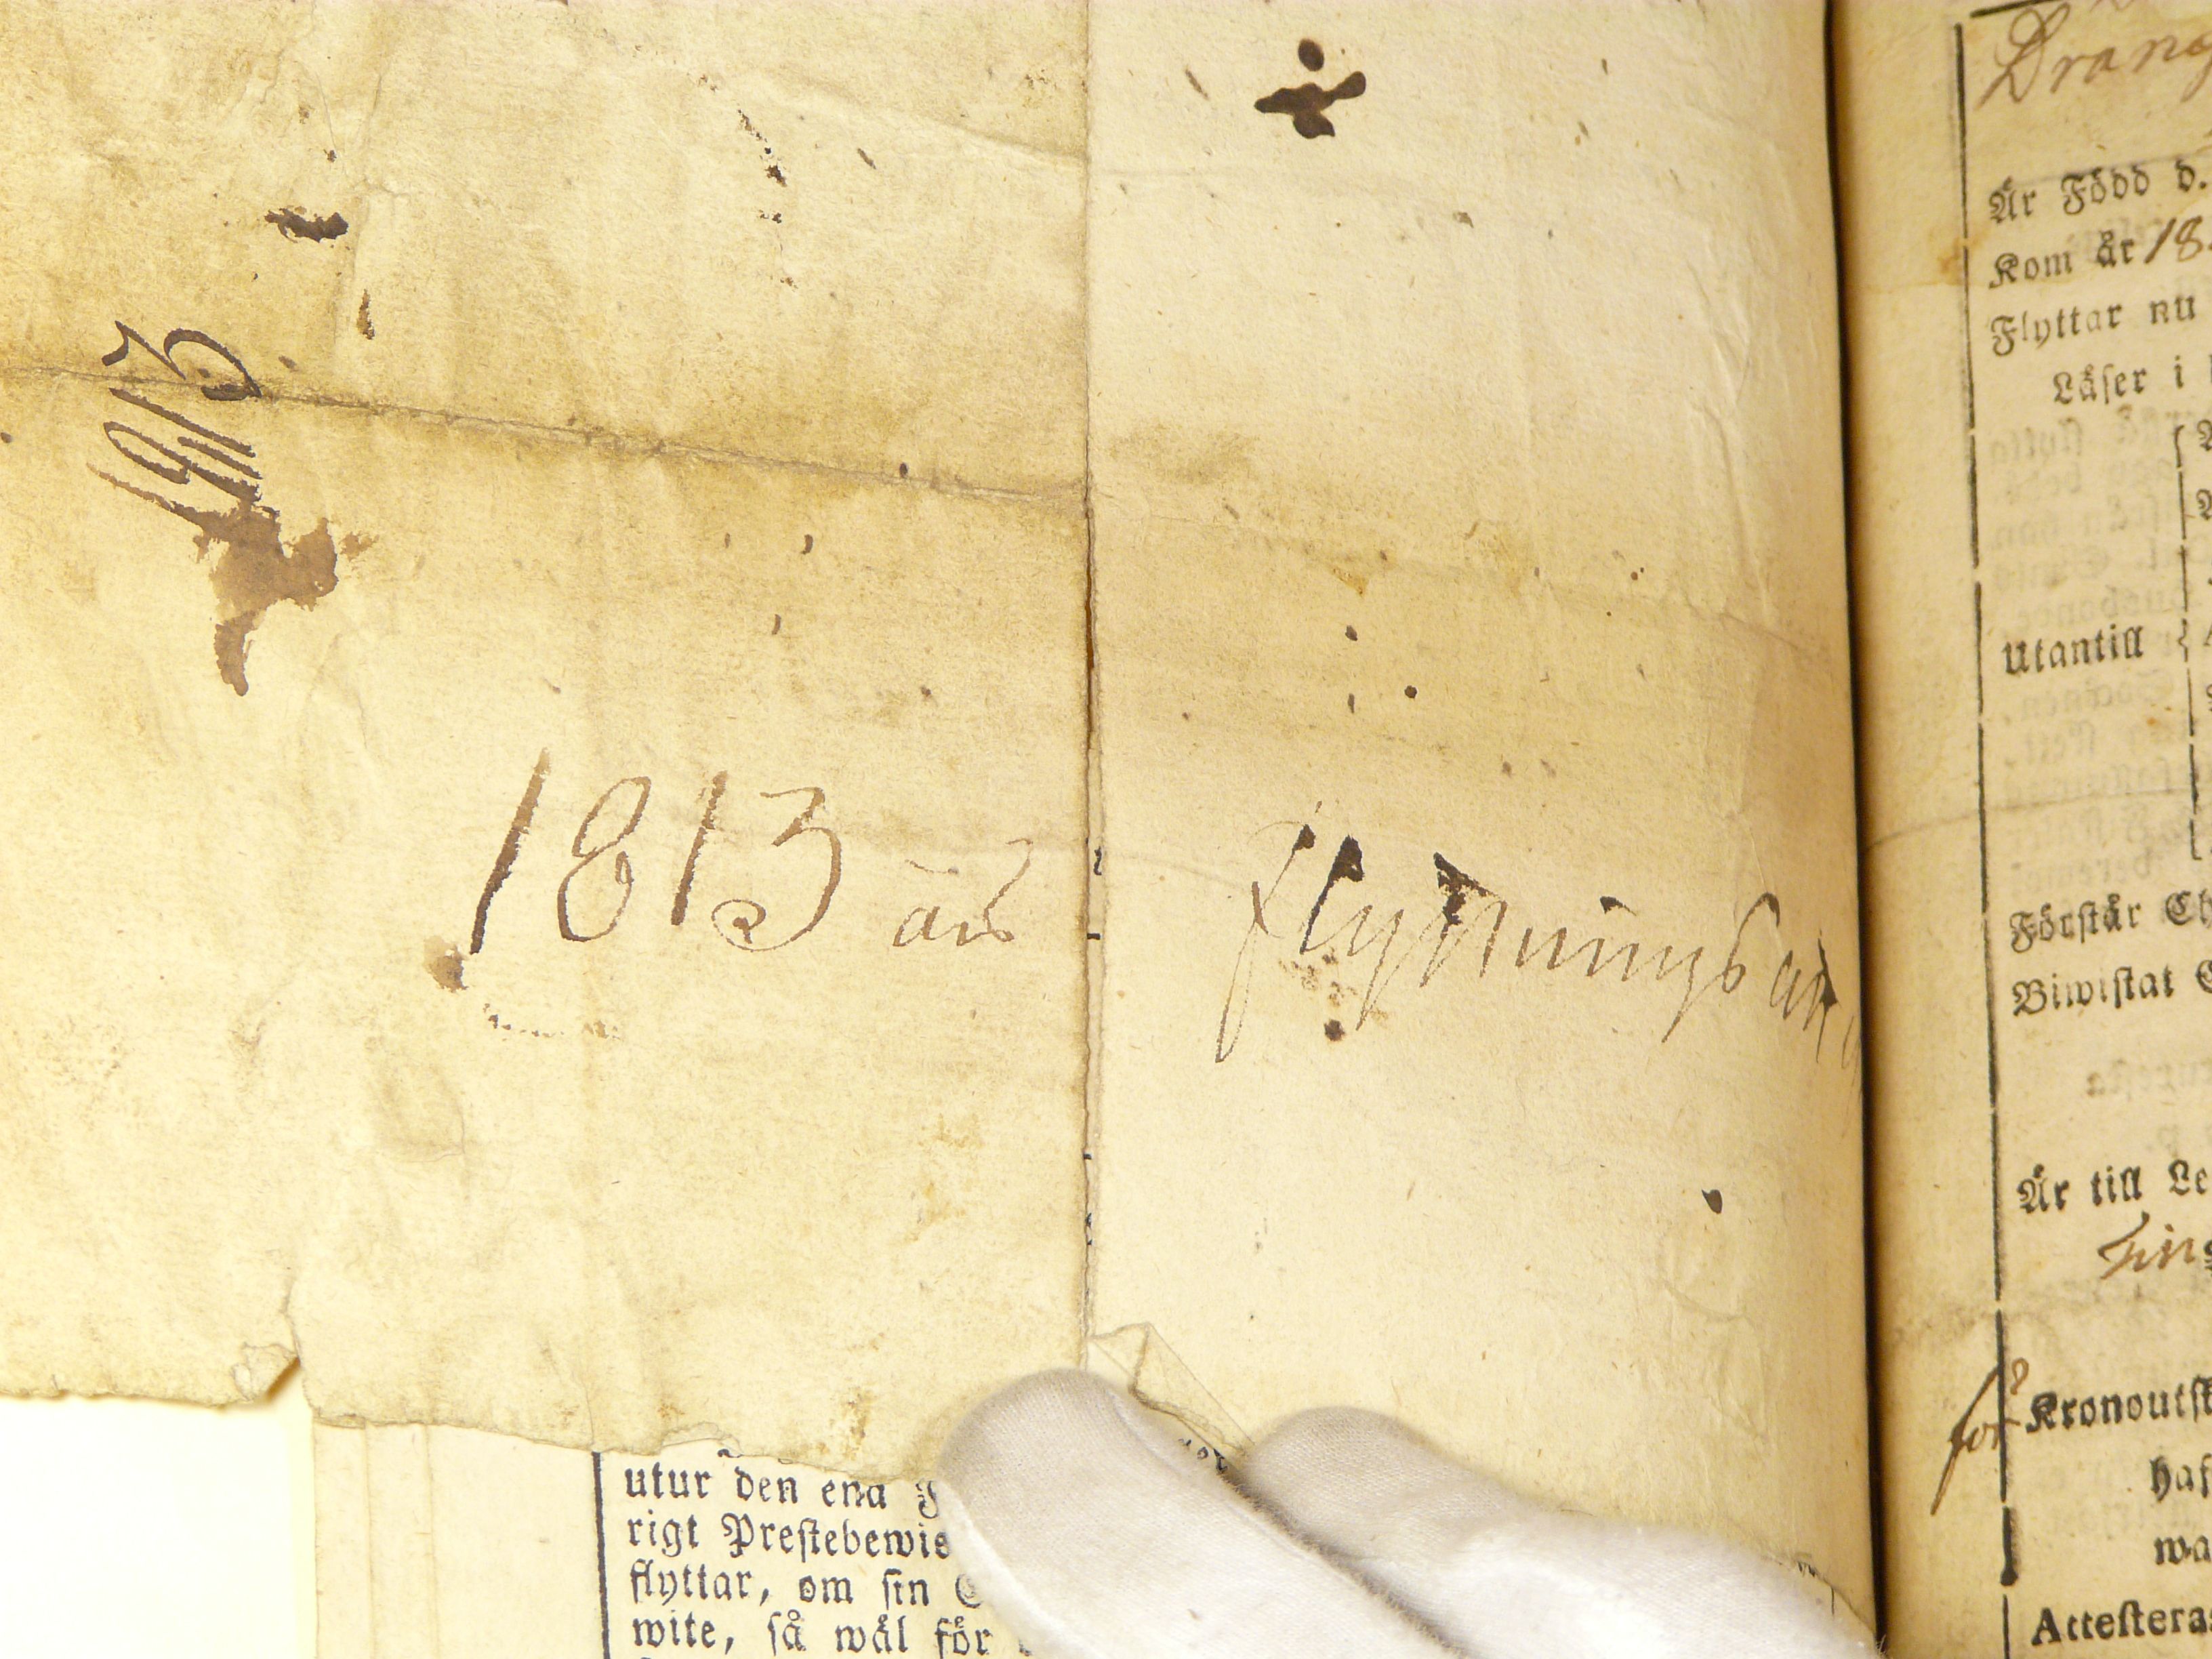 1813
1813 års Flyttnings
utur den ena
rigt Prestebewis
flyttar, om sin
wite, så wäl för
Drang
Är Född d.
Kom år 18
Flyttar nu
Läser i
Utantill
Förstår Ch
Biwistat
Är till Le
för Kronoutsk
haf
wa
Attestera